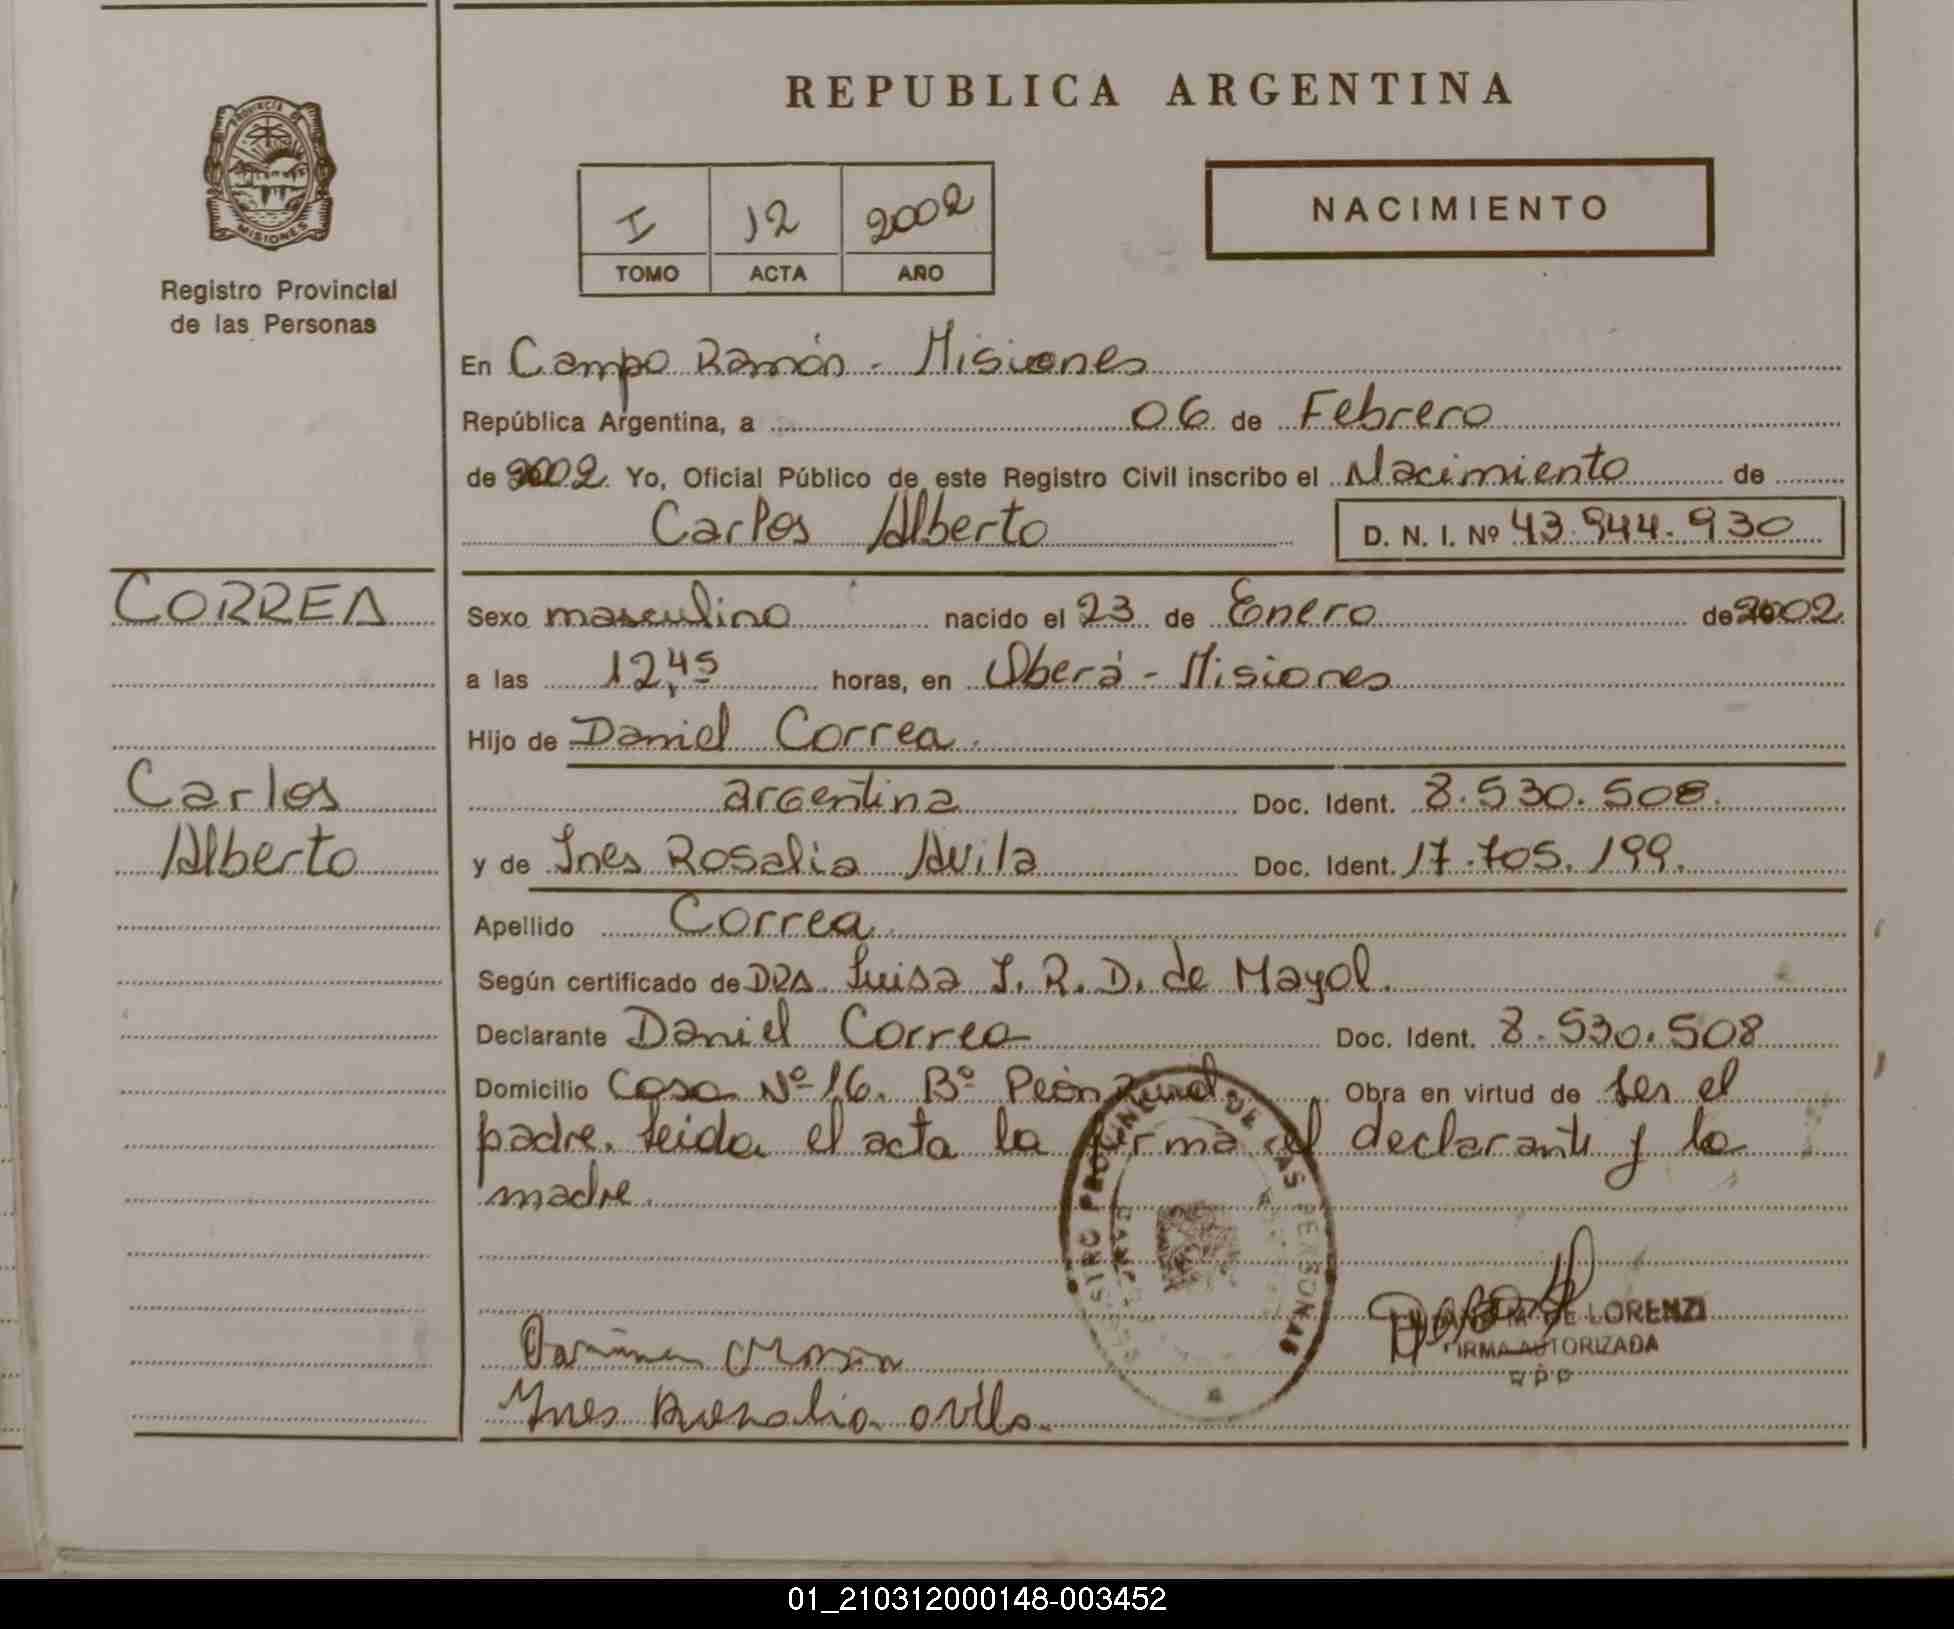 REPUBLICA ARGENTINA
PROVINCIA
MISIONES
Registro Provincial
de las Personas
I 12 2002
TOMO ACTA AÑO
NACIMIENTO
En Campo Ramón - Misiones
República Argentina, a 06 de Febrero
de 2002. Yo, Oficial Público de este Registro Civil inscribo el Nacimiento de
Carlos Alberto D. N. I. Nº 43.944.930
CORREA
Sexo masculino nacido el 23 de Enero de 2002
a las 12,45 horas, en Oberá - Misiones
Hijo de Daniel Correa.
Carlos
argentina Doc. Ident. 8.530.508.
Alberto
y de Ines Rosalia Avila Doc. Ident. 17.705.199.
Apellido Correa
Según certificado de DRA. Luisa I. R. D. de Mayol.
Declarante Daniel Correa Doc. Ident. 8.530.508
Domicilio Casa Nº 16. Bº Peón Rural Obra en virtud de ser el
padre. Leida el acta la firma el declarante y la
madre.
REGISTRO PROVINCIAL DE LAS PERSONAS
DE LORENZI
FIRMA AUTORIZADA
Ines Rosalia avila.
01_210312000148-003452